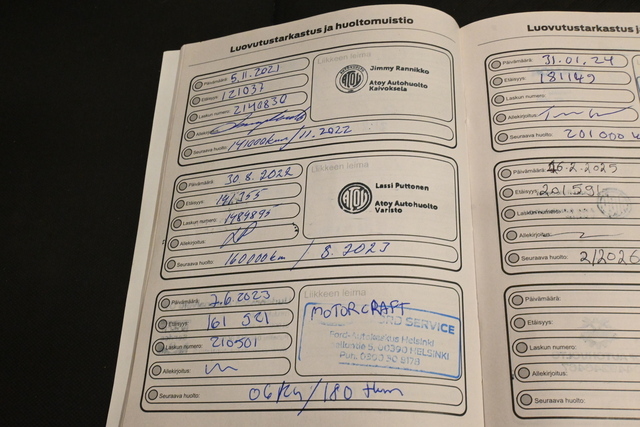 Luovutustarkastus ja huoltomuistio
Päivämäärä: 5.11.2021
Etäisyys: 121037
Laskun numero: 2140830
Allekirjoitus:
Seuraava huolto: 141000km/11.2022
Liikkeen leima
Jimmy Rannikko
ATOY
Atoy Autohuolto
Kaivoksela
Päivämäärä: 30.8.2022
Etäisyys: 141355
Laskun numero: 1484895
Allekirjoitus:
Seuraava huolto: 160000km / 8.2023
Liikkeen leima
Lassi Puttonen
ATOY
Atoy Autohuolto
Varisto
Päivämäärä: 7.6.2023
Etäisyys: 161 521
Laskun numero: 210501
Allekirjoitus:
Seuraava huolto: 06/24/180 tkm
Liikkeen leima
MOTORCRAFT
SERVICE
HELSINKI
Luovutustarkastus j
Päivämäärä: 31.01.24
Etäisyys: 181149
Laskun numero:
Allekirjoitus:
Seuraava huolto: 201 000
Päivämäärä: 6.2.2025
Etäisyys: 201591
Laskun numero:
Allekirjoitus:
Seuraava huolto: 2/2026
Päivämäärä:
Etäisyys:
Laskun numero:
Allekirjoitus:
Seuraava huolto: